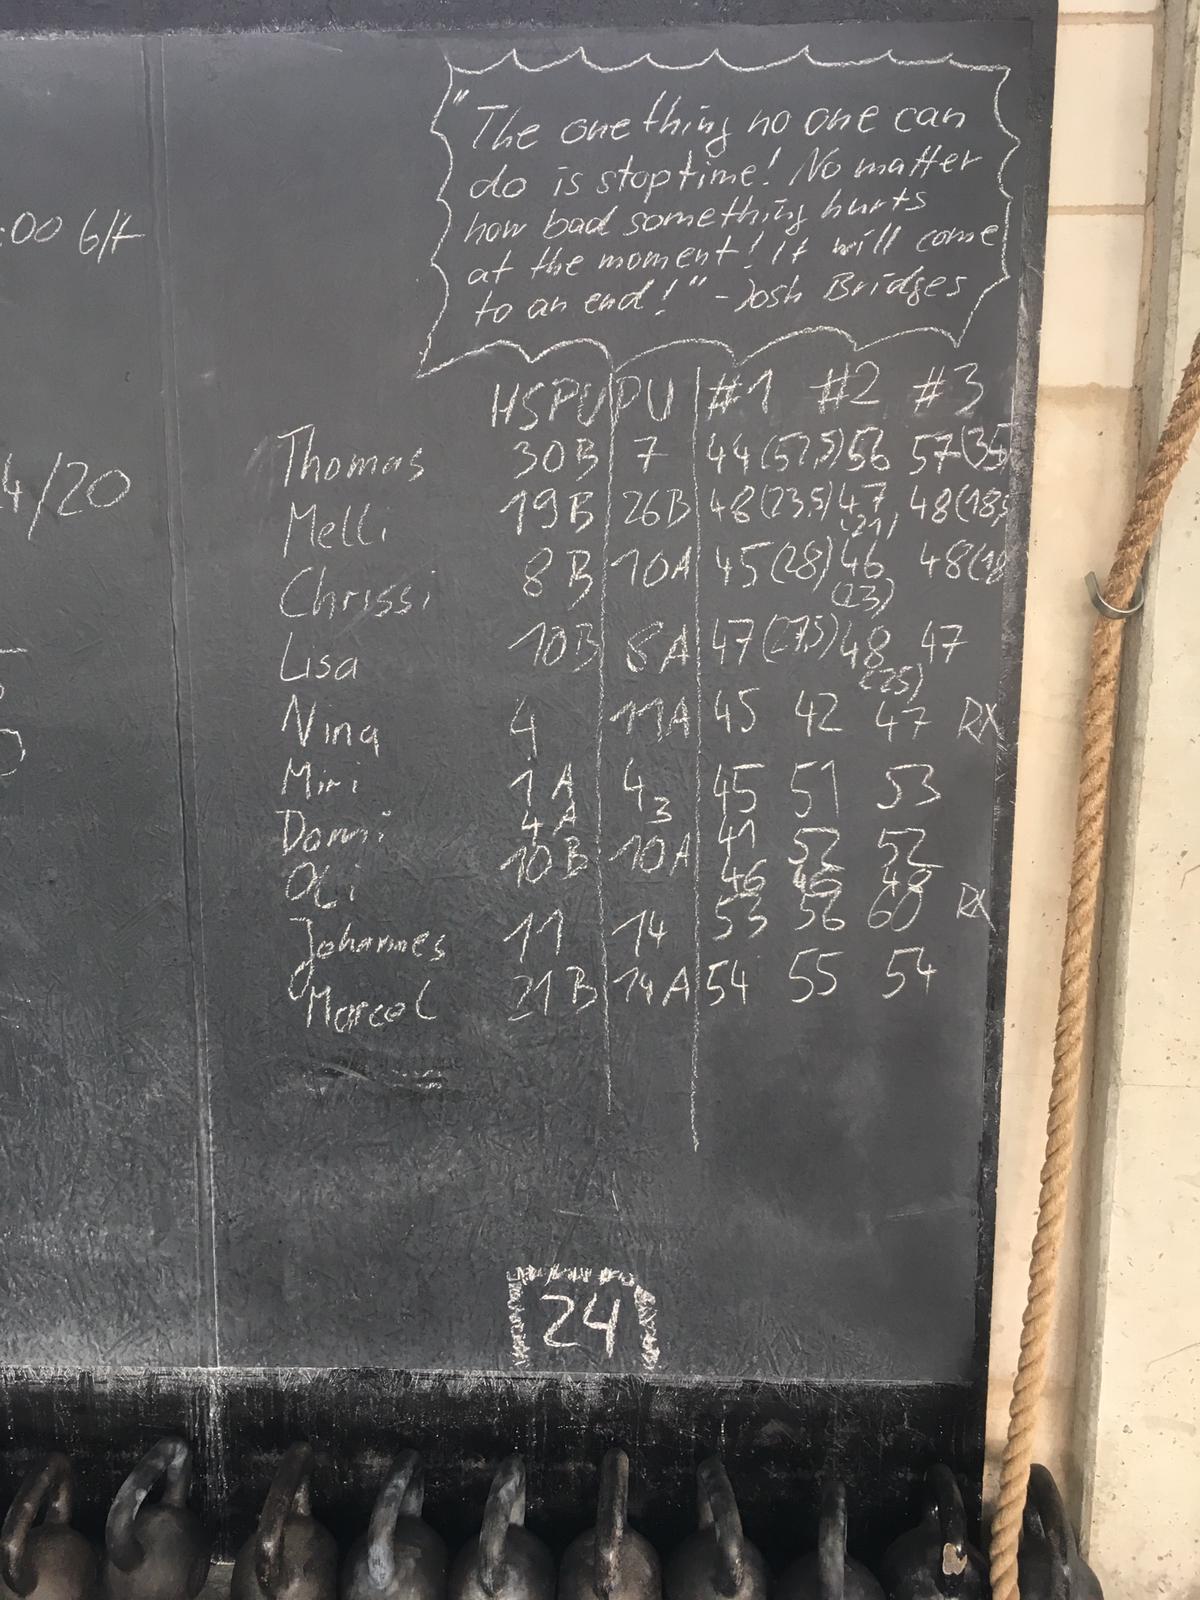 "The one thing no one can
do is stop time! No matter
how bad something hurts
at the moment! It will come
to an end!" - Josh Bridges
:00 6/
4/20
HSPU PU #1 #2 #3
Thomas 30B 7 44 (57,5) 56 57 (35
Melli 19B 26B 48 (23,5) 47 (21) 48 (18,5
Chrissi 8B 10A 45 (28) 46 (23) 48 (18
Lisa 10B 8A 47 (27,5) 48 (25) 47
Nina 4 11A 45 42 47 RX
Miri 1A 4 45 51 53
Domi 4A 3 41 52 52
Oli 10B 10A 46 46 48
Johannes 11 14 53 56 60 RX
Marcel 21B 14A 54 55 54
24